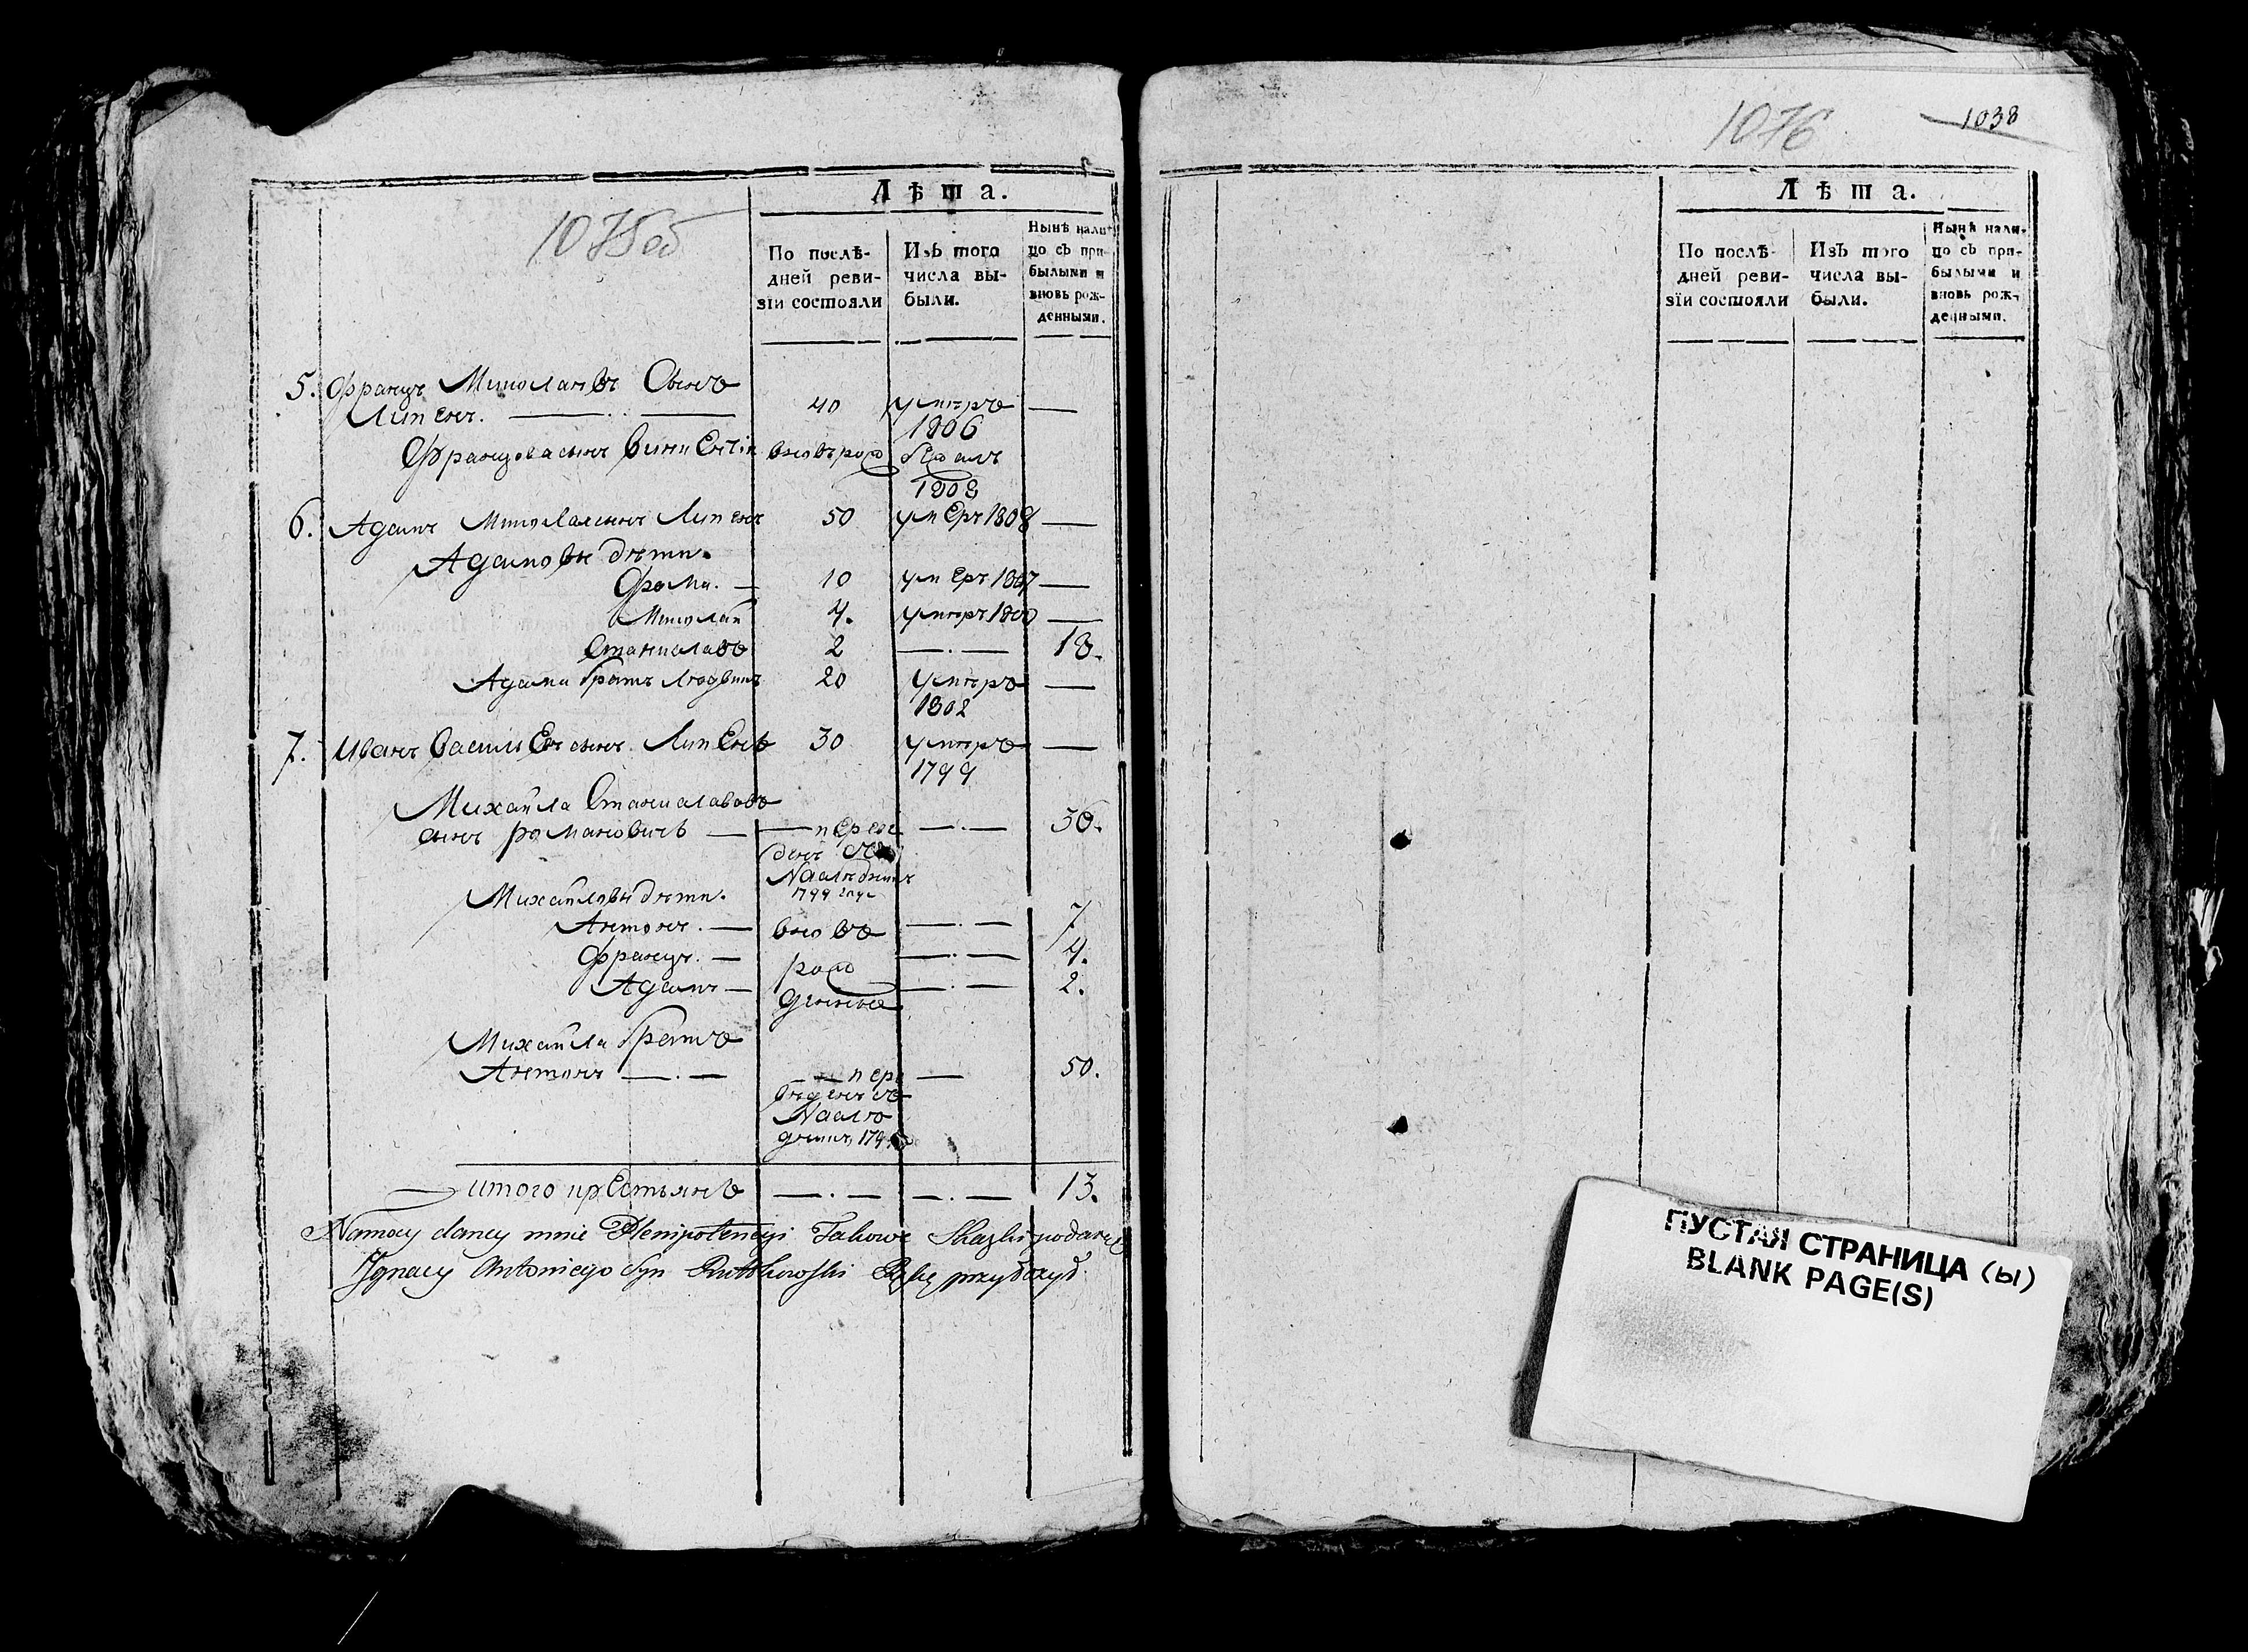 1075об
Лѣта.
По послѣ-
дней реви-
зїи состояли
Изъ того
числа вы-
были.
Нынѣ нали-
цо съ при-
былыми и
вновь рож-
денными.
5. Францъ Миколаевъ Сынъ
Липень. 40 умеръ —
1806
Францова сынъ Винцентiй вновь рож бежалъ
1808
6. Адамъ Миколая сынъ Липень 50 умеръ 1808 —
Адамовы дѣти.
Фома. — 10 умеръ 1807 —
Миколай 4. умеръ 1800 —
Станиславъ 2 —.— 18.
Адама братъ Людвикъ 20 умеръ —
1802
7. Иванъ Васильевъ сынъ Липень 30 умеръ —
1799
Михайла Станиславовъ
сынъ Романовичъ — — переве —.— 36.
денъ съ
1799 году
Михайловы дѣти.
Антонъ. — вновь —.— 7
Францъ. — рож —.— 4.
Адамъ — денные —.— 2.
Михайла братъ
Антонъ —.— — пере — 50.
веденъ съ
итого крестьянъ —.— —.— 13.
Namocy daney mnie Plenipotencyi Takowe Skazki podawszy
Ignacy Antoniego Syn Rutkowski Rękę przyłożył
1076
1038
Лѣта.
По послѣ-
дней реви-
зїи состояли
Изъ того
числа вы-
были.
Нынѣ нали-
цо съ при-
былыми и
вновь рож-
денными.
ПУСТАЯ СТРАНИЦА (Ы)
BLANK PAGE(S)